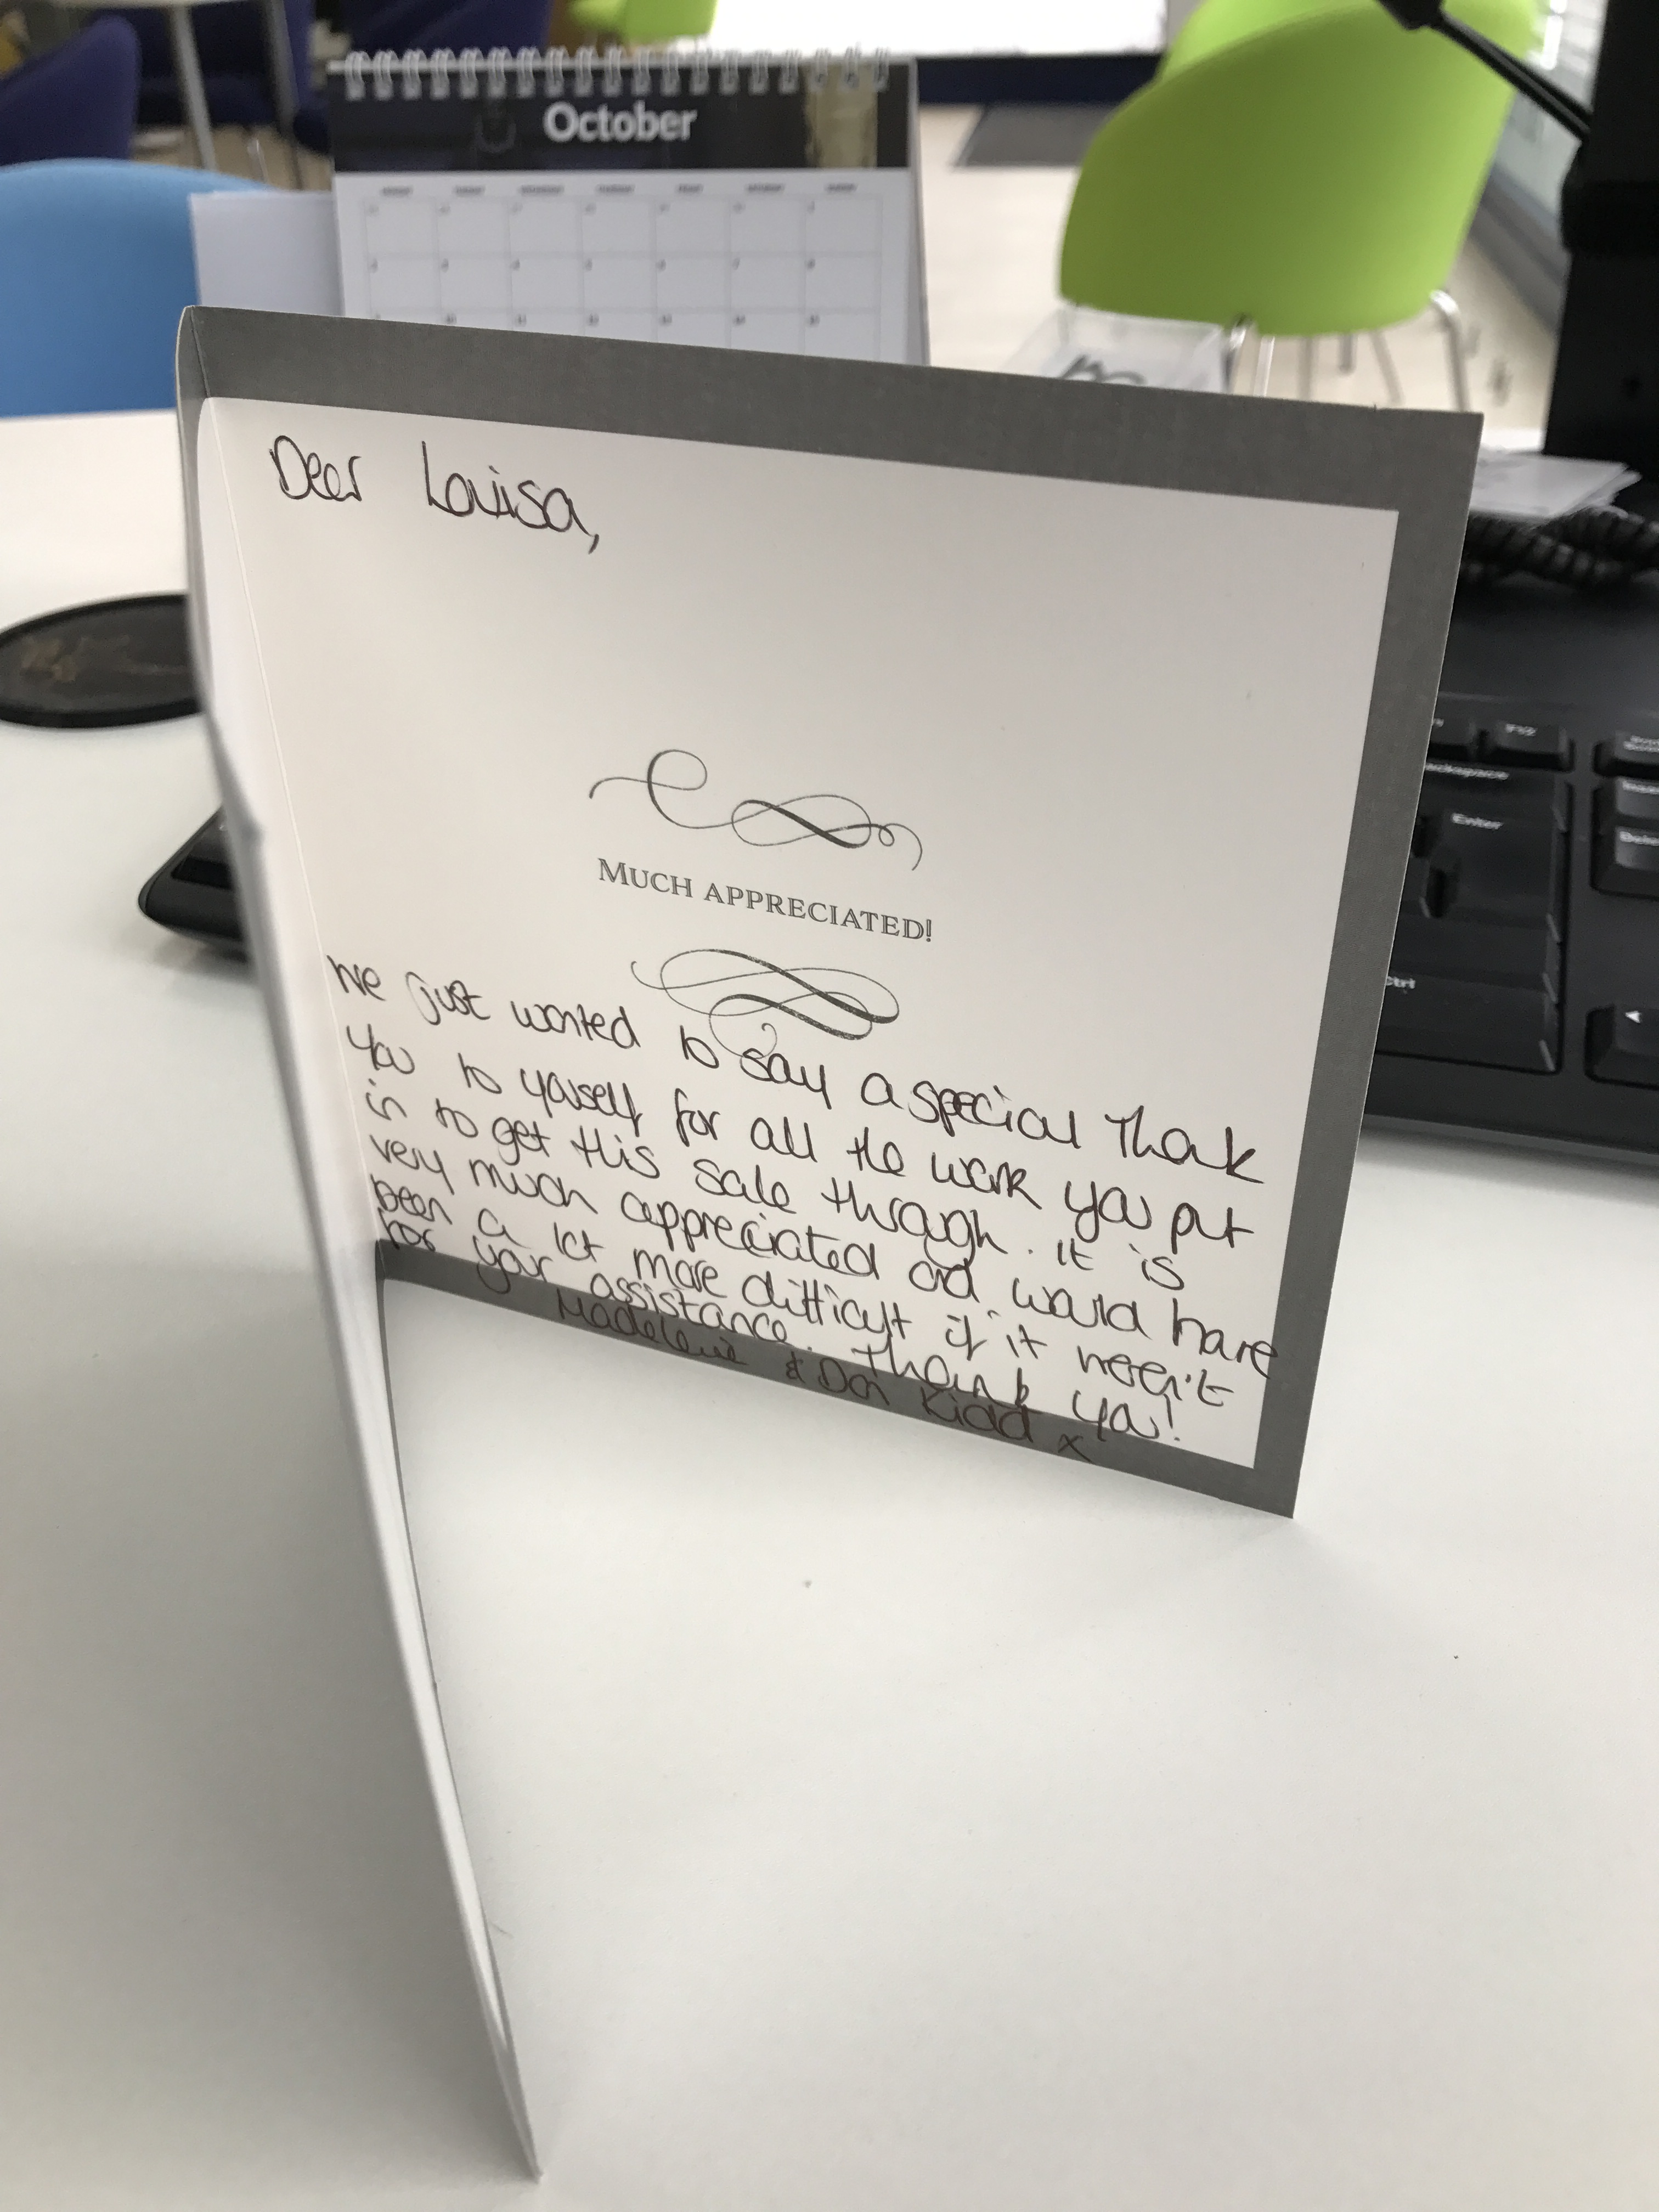 October
Dear Louisa,
MUCH APPRECIATED!
We just wanted to say a special Thank
you to yourself for all the work you put
in to get this sale through. It is
very much appreciated and would have
been a lot more difficult if it weren't
for your assistance. Thank you!
Madeleine & Dan Kidd x
F12
Backspace
Enter
Ctrl